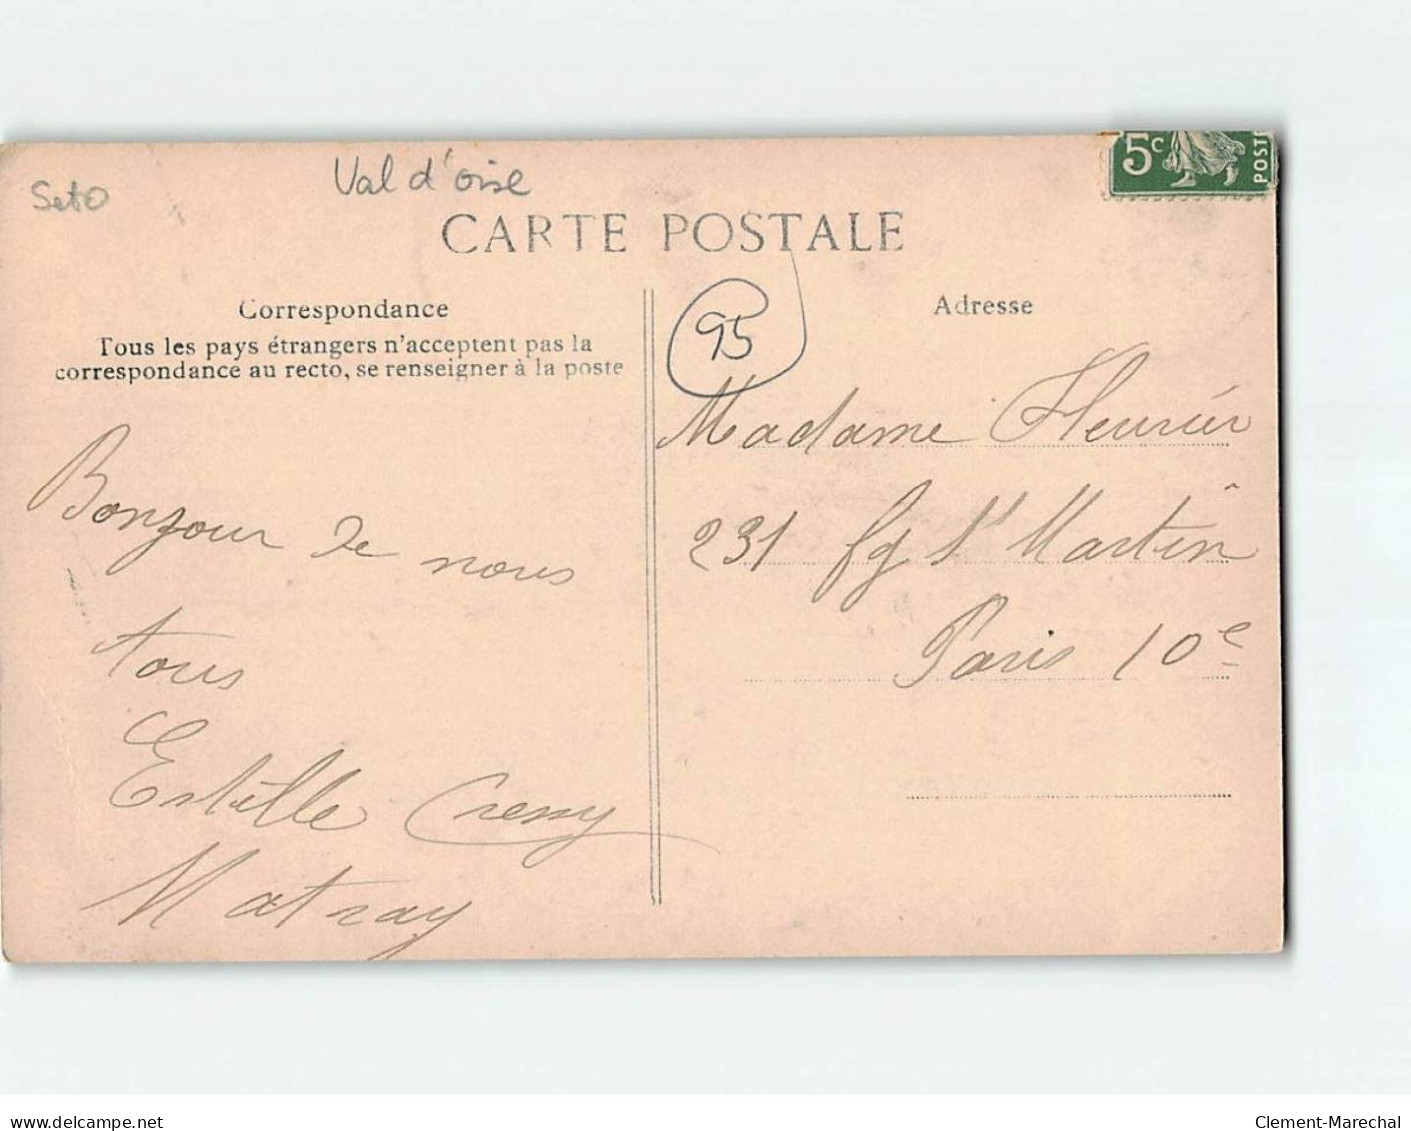 Seto
Val d'oise
5c
POST
CARTE POSTALE
Correspondance
Tous les pays étrangers n'acceptent pas la
correspondance au recto, se renseigner à la poste
Bonjour de nous
tous
Estelle Cressy
Matray
95
Adresse
Madame Fleurier
231 fg St Martin
Paris 10e
www.delcampe.net
Clement-Marechal